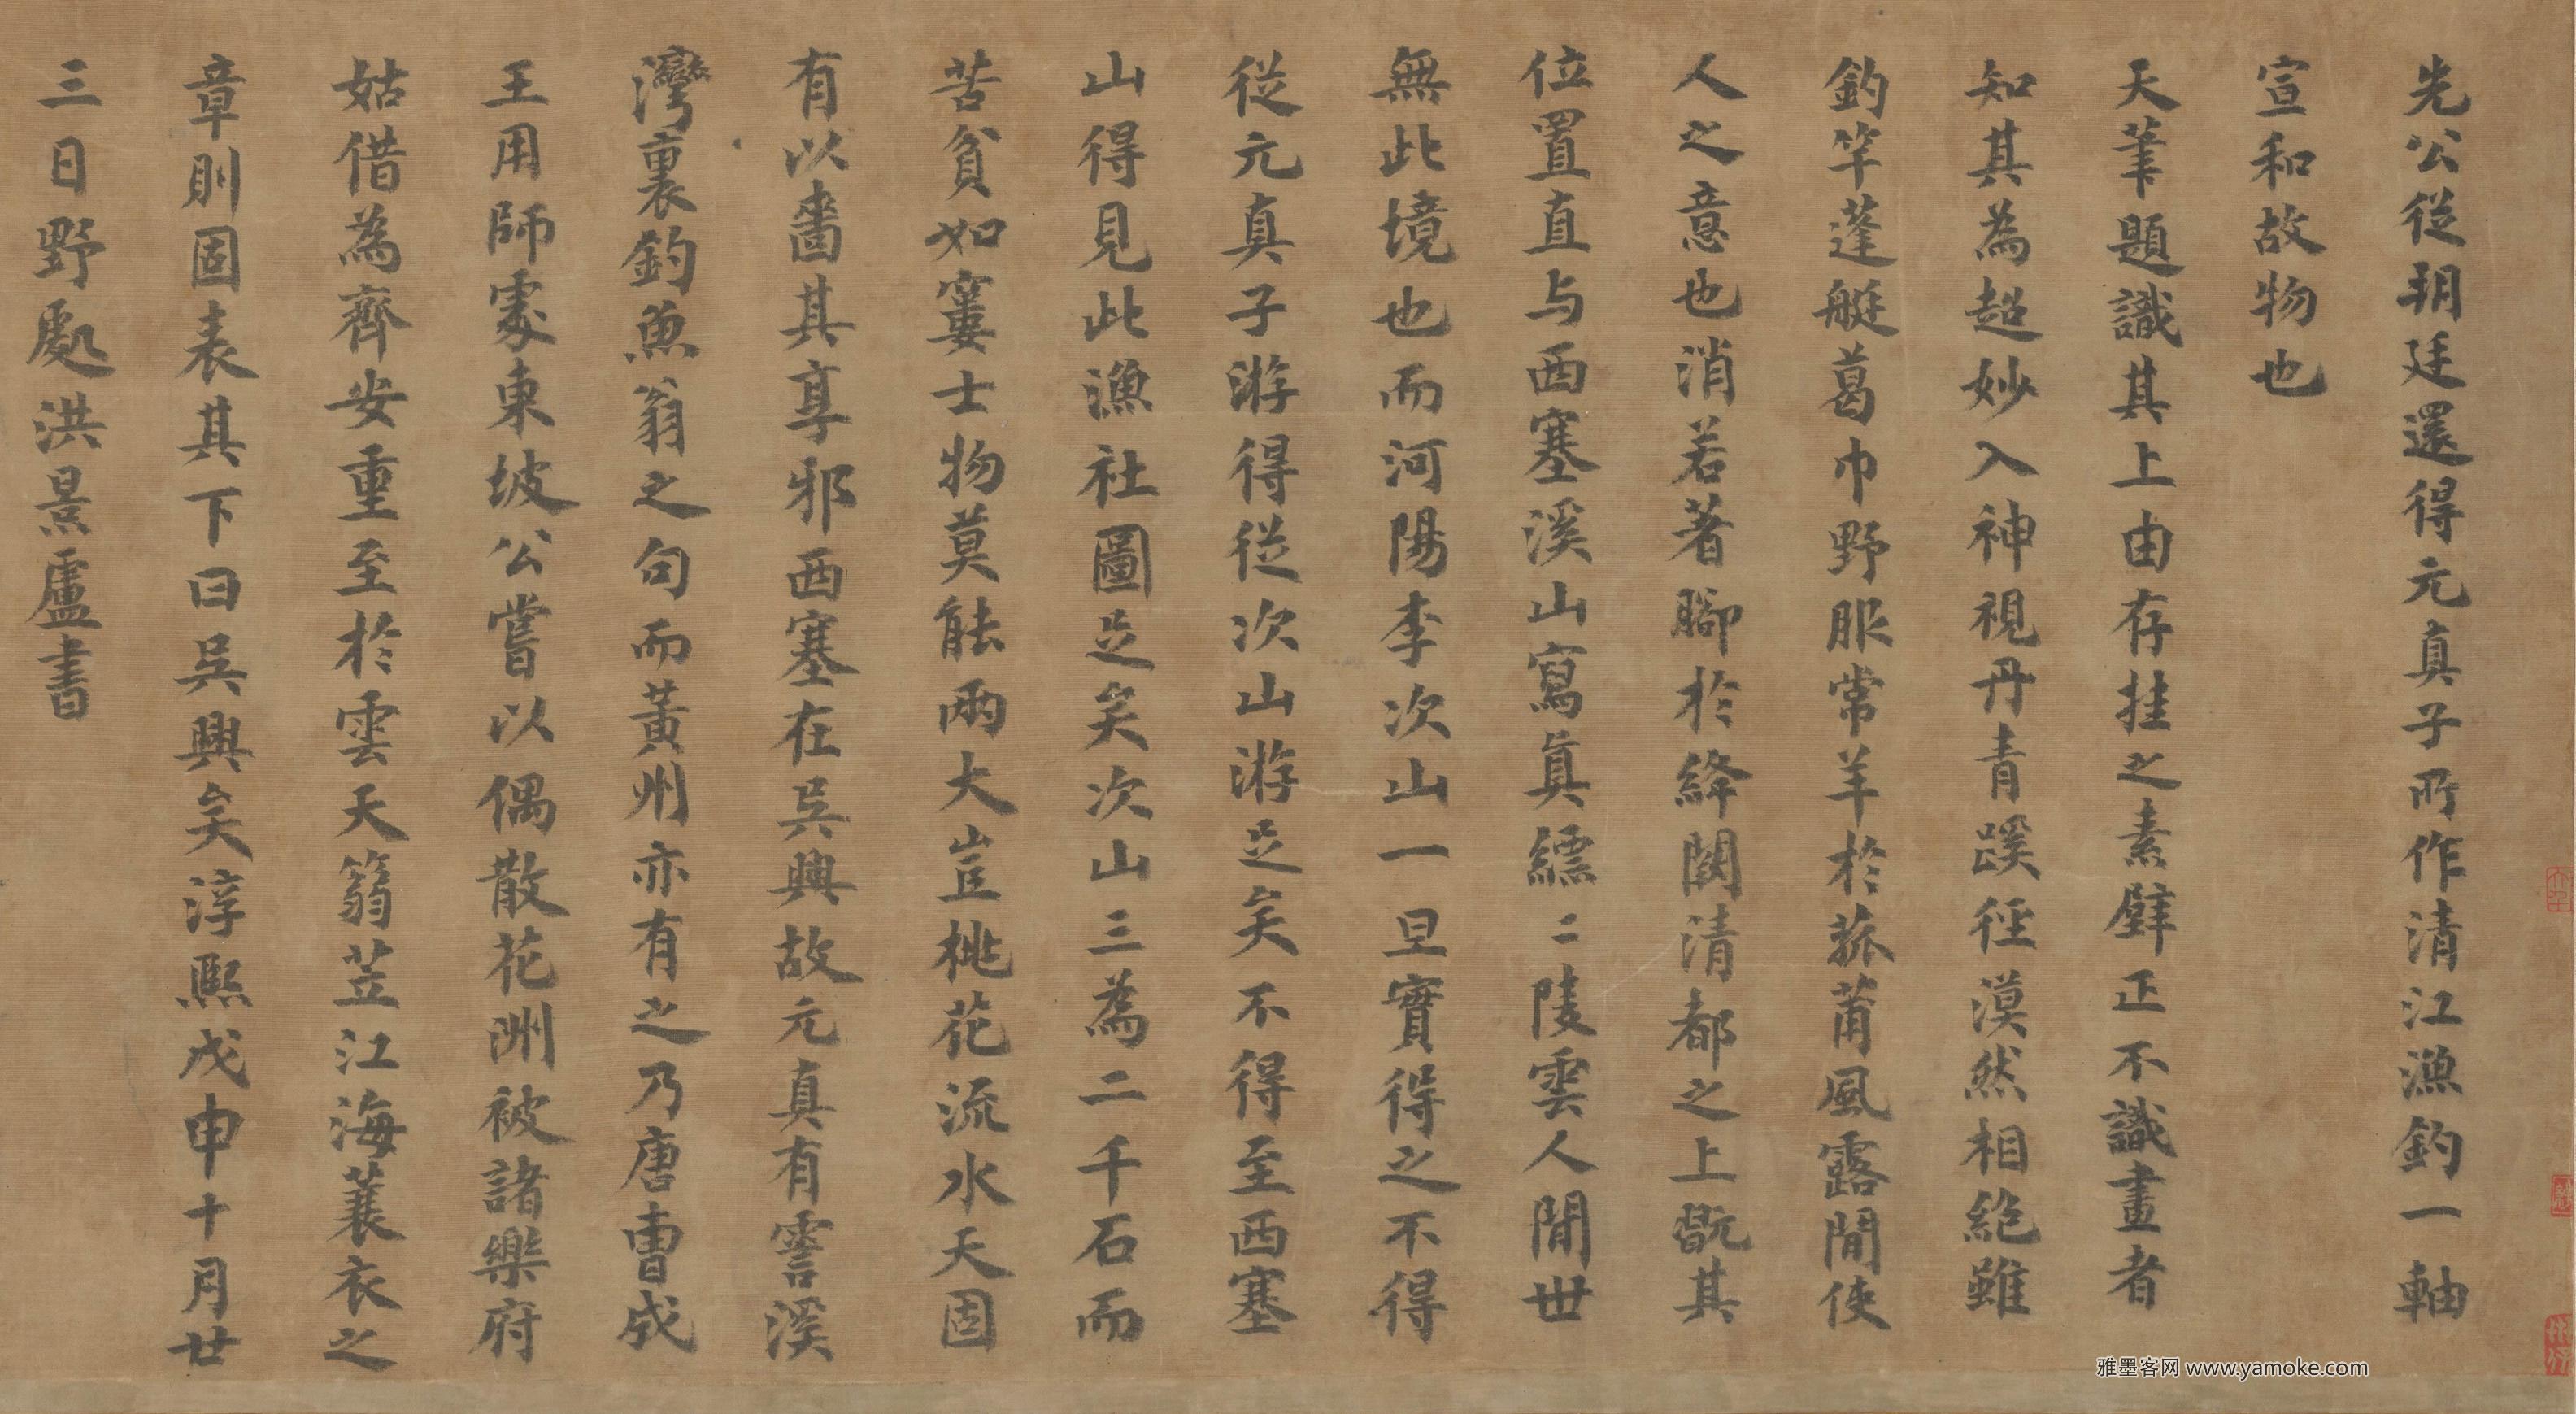 先公從朔廷還得元真子所作清江漁釣一軸
宣和故物也
天筆題識其上由存挂之素壁正不識畫者
知其為超妙入神視丹青蹊徑漠然相絶雖
釣竿蓬艇葛巾野服常羊於菰莆風露間使
人之意也消若著腳於絳闕清都之上翫其
位置直与西塞溪山寫真縹二陵雲人間世
無此境也而河陽李次山一旦實得之不得
從元真子游得從次山游足矣不得至西塞
山得見此漁社圖足矣次山三為二千石而
苦貧如窶士物莫能兩大豈桃花流水天固
有以嗇其享邪西塞在吳興故元真有霅溪
灣裏釣魚翁之句而黃州亦有之乃唐曹成
王用師處東坡公嘗以偶散花洲被諸樂府
姑借為齊安重至於雲天篛笠江海蓑衣之
章則固表其下曰吳興矣淳熙戊申十月廿
三日野處洪景盧書
雅墨客网 www.yamoke.com